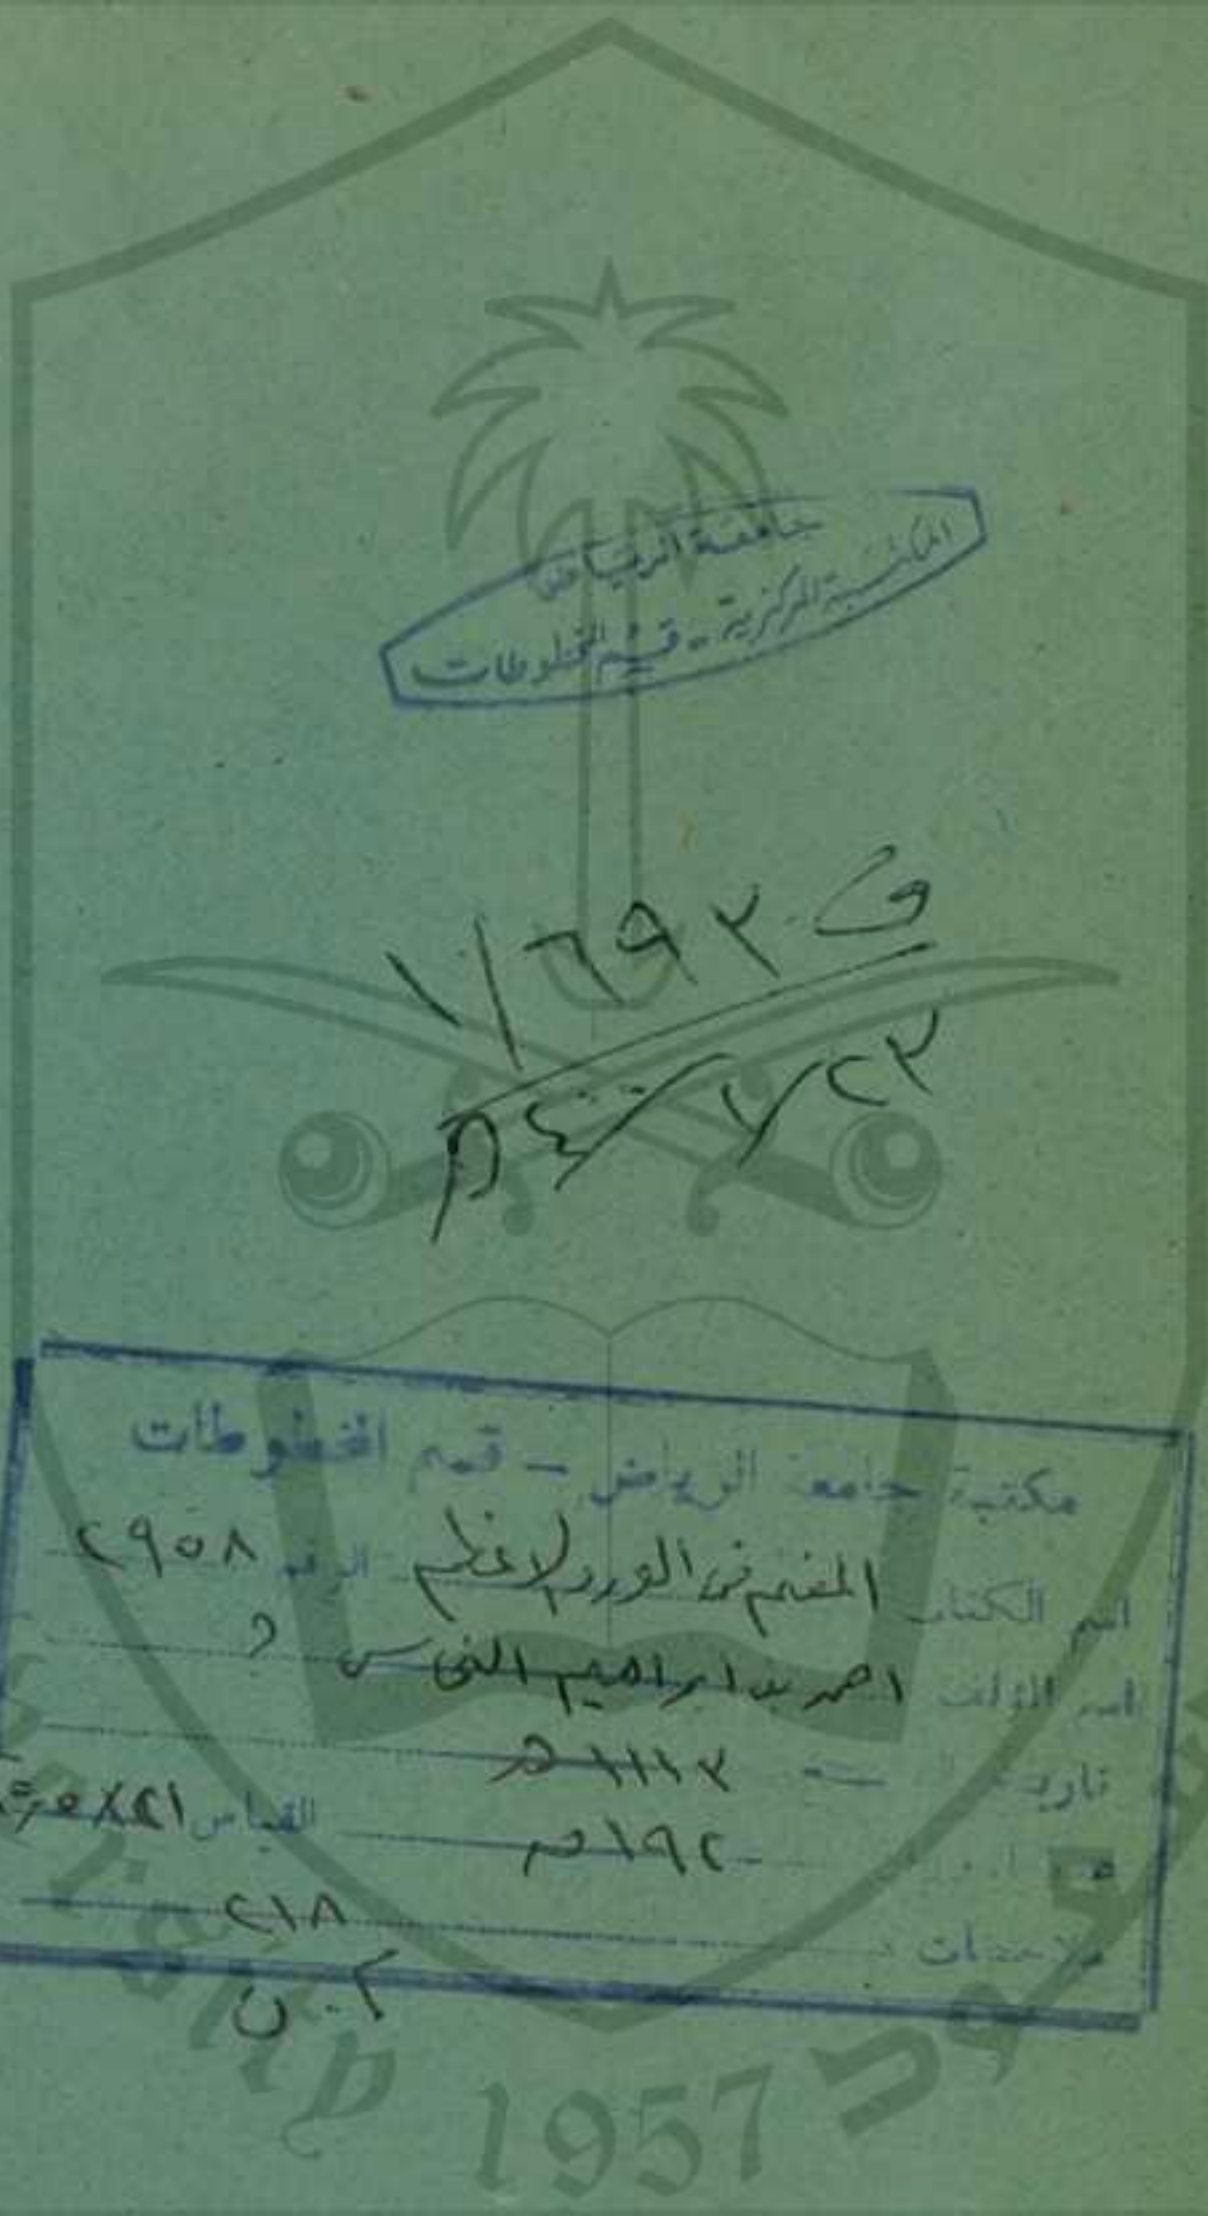 جامعة الرياض
المكتبة المركزية - قسم المخطوطات
ف ١/٦٩٢
٢٢/٧/٤٠٠هـ
مكتبة جامعة الرياض - قسم المخطوطات
اسم الكتاب المغنم في الورد الاعظم الرقم ٢٩٥٨
اسم المؤلف احمد بن ابراهيم النحاس
تاريخ النسخ ١١١٢هـ
١٩٢ ص القياس
ملاحظات ٢١٨
م.ن
1957